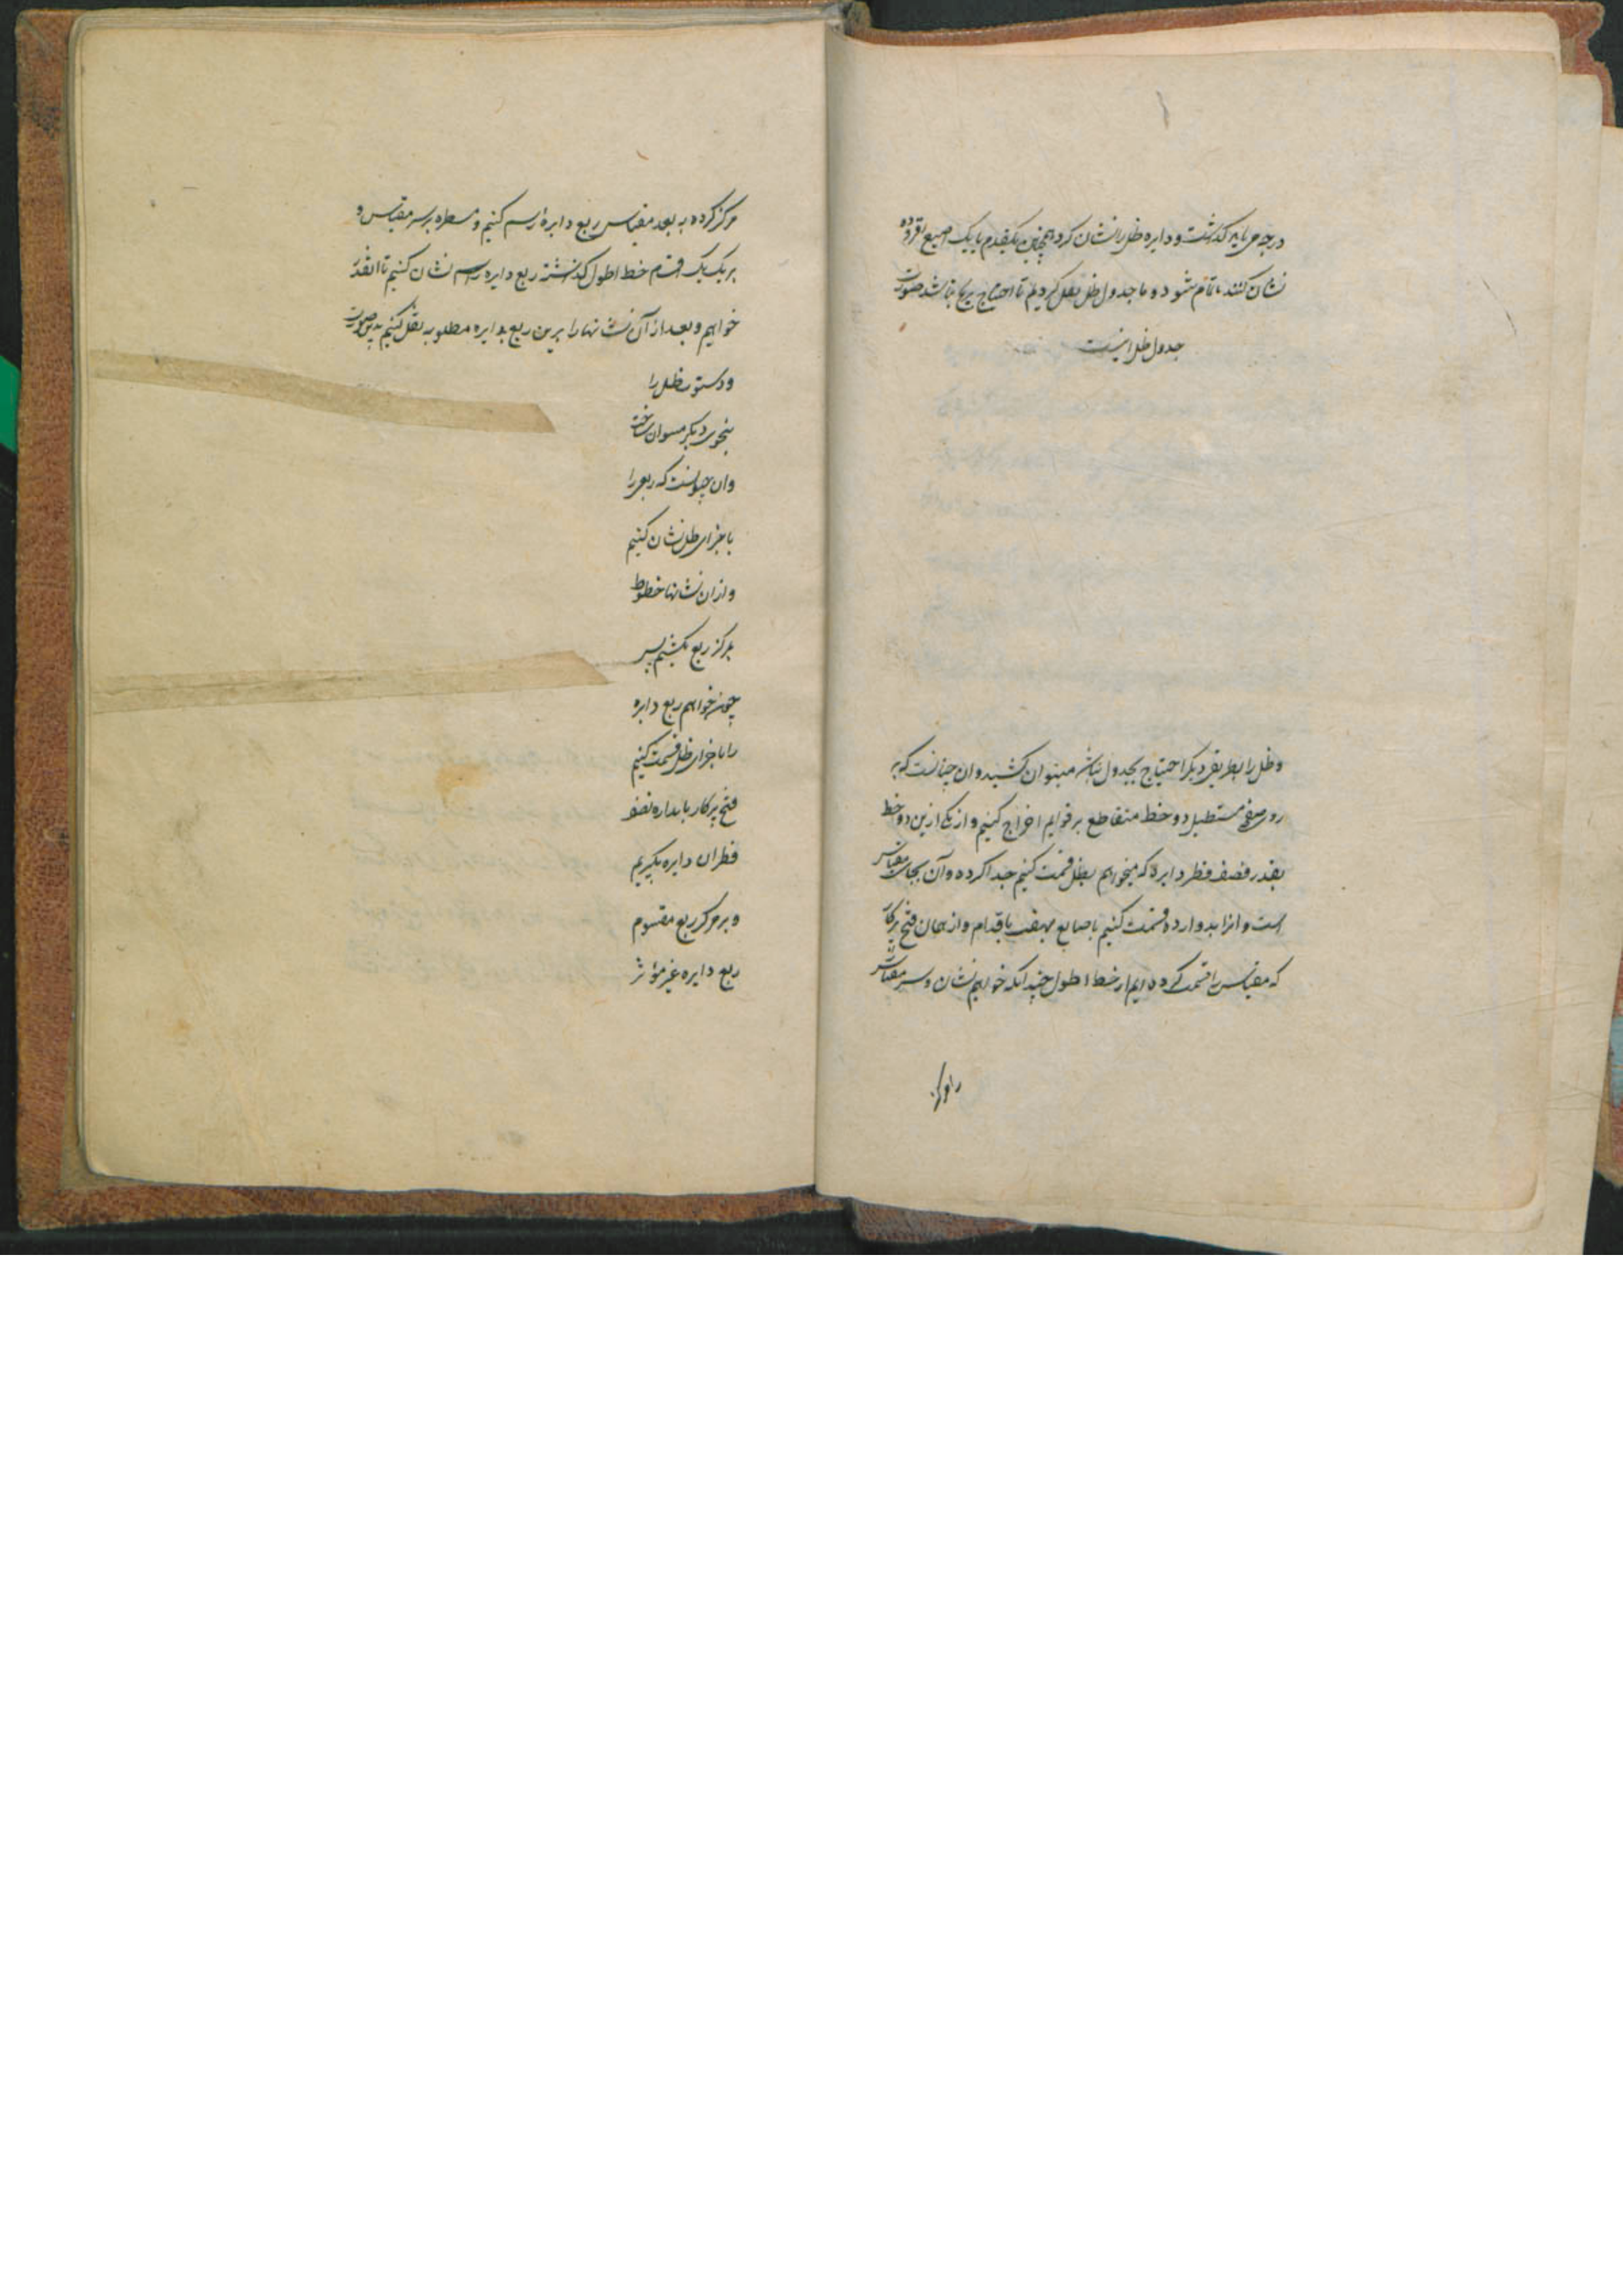 درجه می باید گذاشت و دایره ظل را نشان کرد و همچنین یکقدم یا یک اصبع افزوده
نشان کنند تا تمام شود و ما جدول ظل نقل کردیم تا احتیاج نباشد صورت
جدول ظل اینست
و ظل را بطریق دیگر احتیاج بجدول نباشد میتوان کشید و ان چنانست که بر
روی صفحه مستطیل دو خط متقاطع بر قوایم اخراج کنیم و از یکی ازین دو خط
بقدر نصف قطر دایرهٔ که میخواهیم بظل قسمت کنیم جدا کرده و آن بجای مقیاس
است و انرا بدوازده قسمت کنیم باصابع بهفت باقدام و از همان فتح پرکار
که مقیاس را قسمت کرده ایم از خط اطول چندانکه خواهیم نشان و سر مقیاس
را مرکز
مرکز کرده به بعد مقیاس ربع دایرهٔ رسم کنیم و مسطره بر سر مقیاس و
بر یک یک قسم خط اطول گذاشته ربع دایره را رسم نشان کنیم تا انقدر
خواهیم و بعد از آن نشانها را برین ربع بدایره مطلوبه نقل کنیم بدین صورت
و دستور ظل را
بنحوی دیگر میتوان ساخت
و ان چنانست که ربعی را
باجزای ظل نشان کنیم
و از ان نشانها خطوط
بمرکز ربع بکشیم پس
چون خواهیم ربع دایره
را باجزای ظل قسمت کنیم
فتح پرکار باندازه نصف
قطر ان دایره بگیریم
و بر مرکز ربع مقسوم
ربع دایره غیر مؤثر